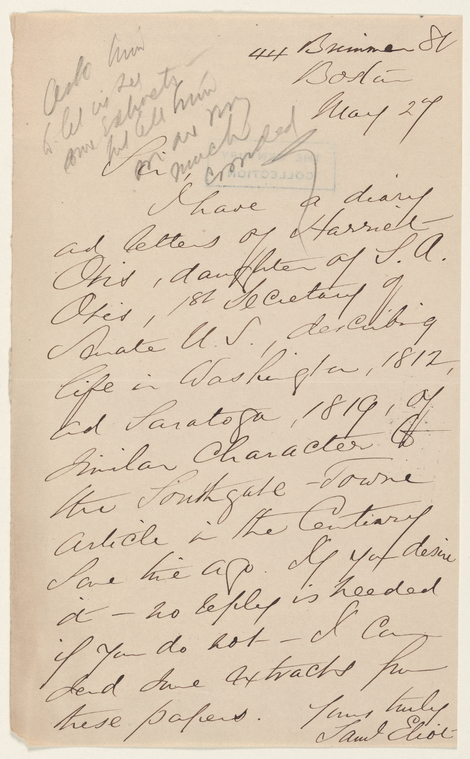 44 Brimmer St
Boston
May 27
Ask him
to let us see
some extracts
but tell him
we are very
much
crowded
Sir,
I have a diary
and letters of Harriet
Otis, daughter of S. A.
Otis, 1st Secretary of
Senate U.S., describing
life in Washington, 1812,
and Saratoga, 1819, of
similar character to
the Southgate-Bowne
Article in the Century
some time ago. If you desire
it – no reply is needed
if you do not – I can
send some extracts from
these papers.
Yours truly
Saml Eliot
COLLECTION